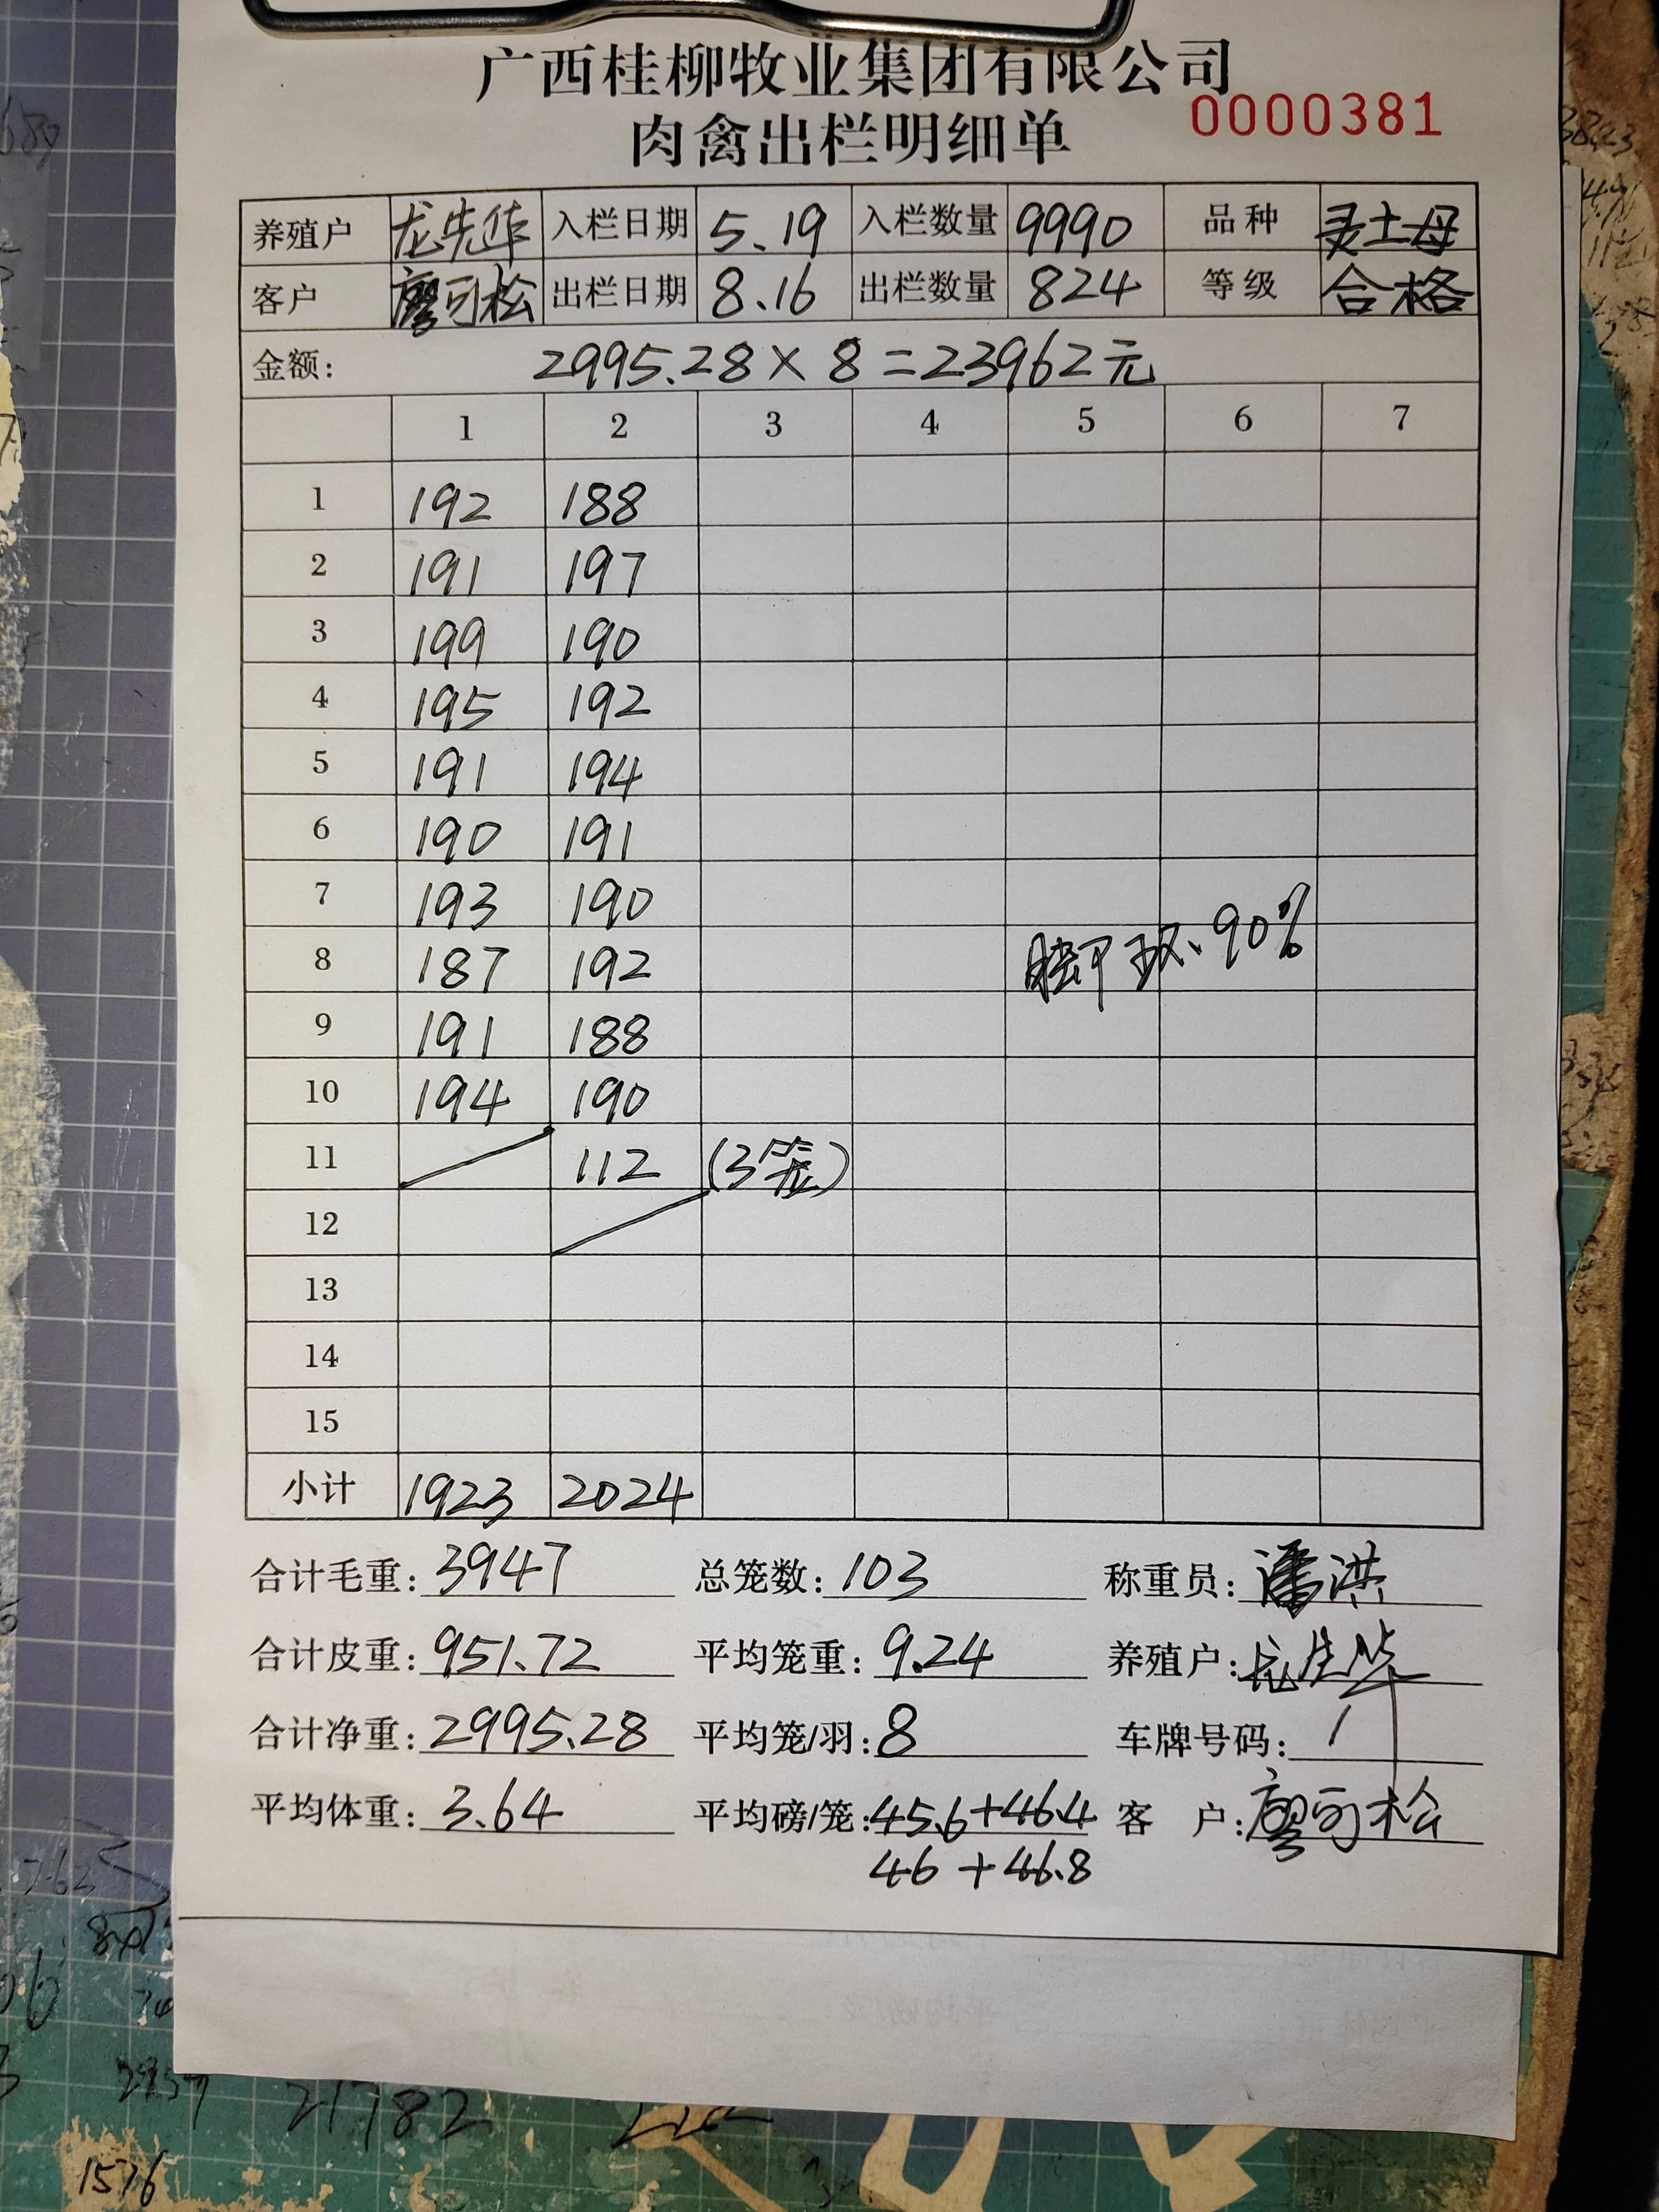 广西桂柳牧业集团有限公司
肉禽出栏明细单 0000381
养殖户 龙先华 入栏日期 5.19 入栏数量 9990 品种 灵土母
客户 廖可松 出栏日期 8.16 出栏数量 824 等级 合格
金额: 2995.28×8=23962元
1 2 3 4 5 6 7
1 192 188
2 191 197
3 199 190
4 195 192
5 191 194
6 190 191
7 193 190
8 187 192 脚环、90%
9 191 188
10 194 190
11 112 (3笼)
12
13
14
15
小计 1923 2024
合计毛重: 3947 总笼数: 103 称重员: 潘洪
合计皮重: 951.72 平均笼重: 9.24 养殖户:
合计净重: 2995.28 平均笼/羽: 8 车牌号码: /
平均体重: 3.64 平均磅/笼: 45.6+46.4 客 户: 廖可松
46+46.8
21782
1576